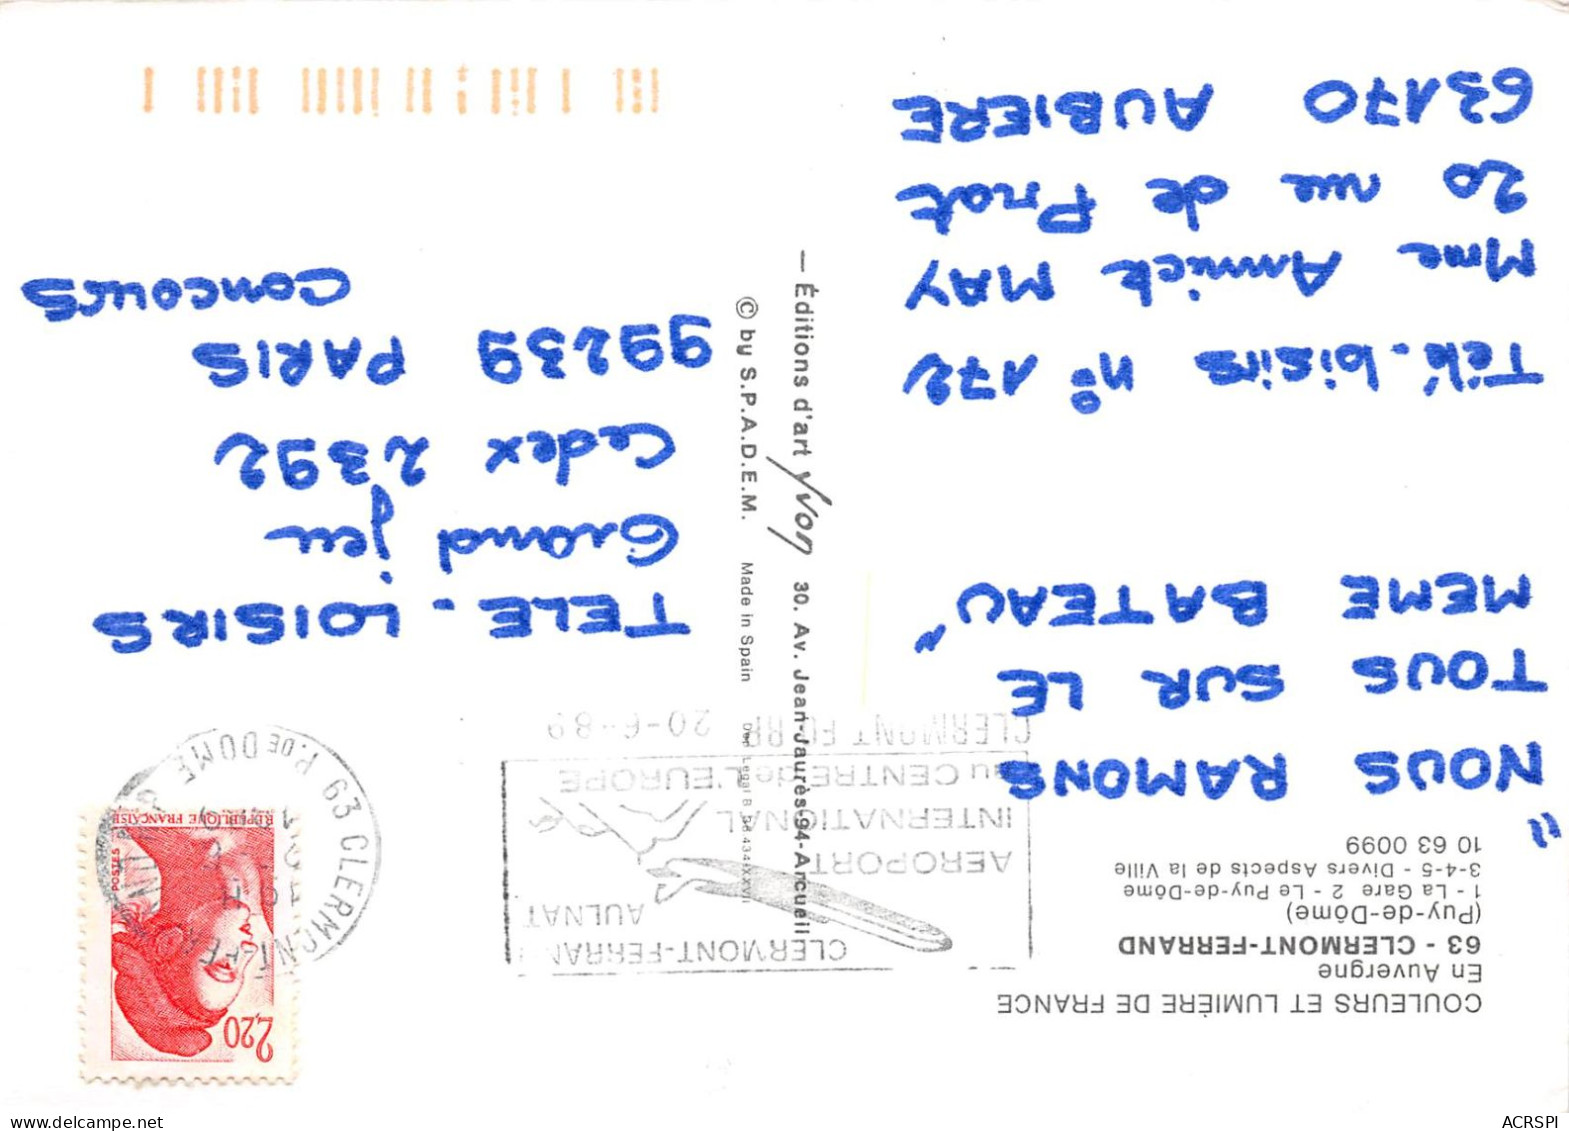 COULEURS ET LUMIÈRE DE FRANCE
En Auvergne
63 - CLERMONT-FERRAND
(Puy-de-Dôme)
1 - La Gare 2 - Le Puy-de-Dôme
3-4-5 - Divers Aspects de la Ville
10 63 0099
"NOUS RAMONS
TOUS SUR LE
MEME BATEAU"
Télé-loisirs n° 172
Mme Annick MAY
20 rue de Prat
63170 AUBIERE
— Éditions d'art Yvon 30. Av. Jean-Jaurès-94-Arcueil
© by S.P.A.D.E.M. Made in Spain
CLERMONT-FERRAN
AULNAT
AEROPORT
INTERNATIONAL
au CENTRE de L'EUROPE
CLERMONT FERR 20-6-89
2,20
POSTES
REPUBLIQUE FRANÇAISE
63 CLERMONT-FER
P. DE DOME
TELE-LOISIRS
Grand jeu
Cedex 2392
99239 PARIS
CONCOURS
ACRSPI